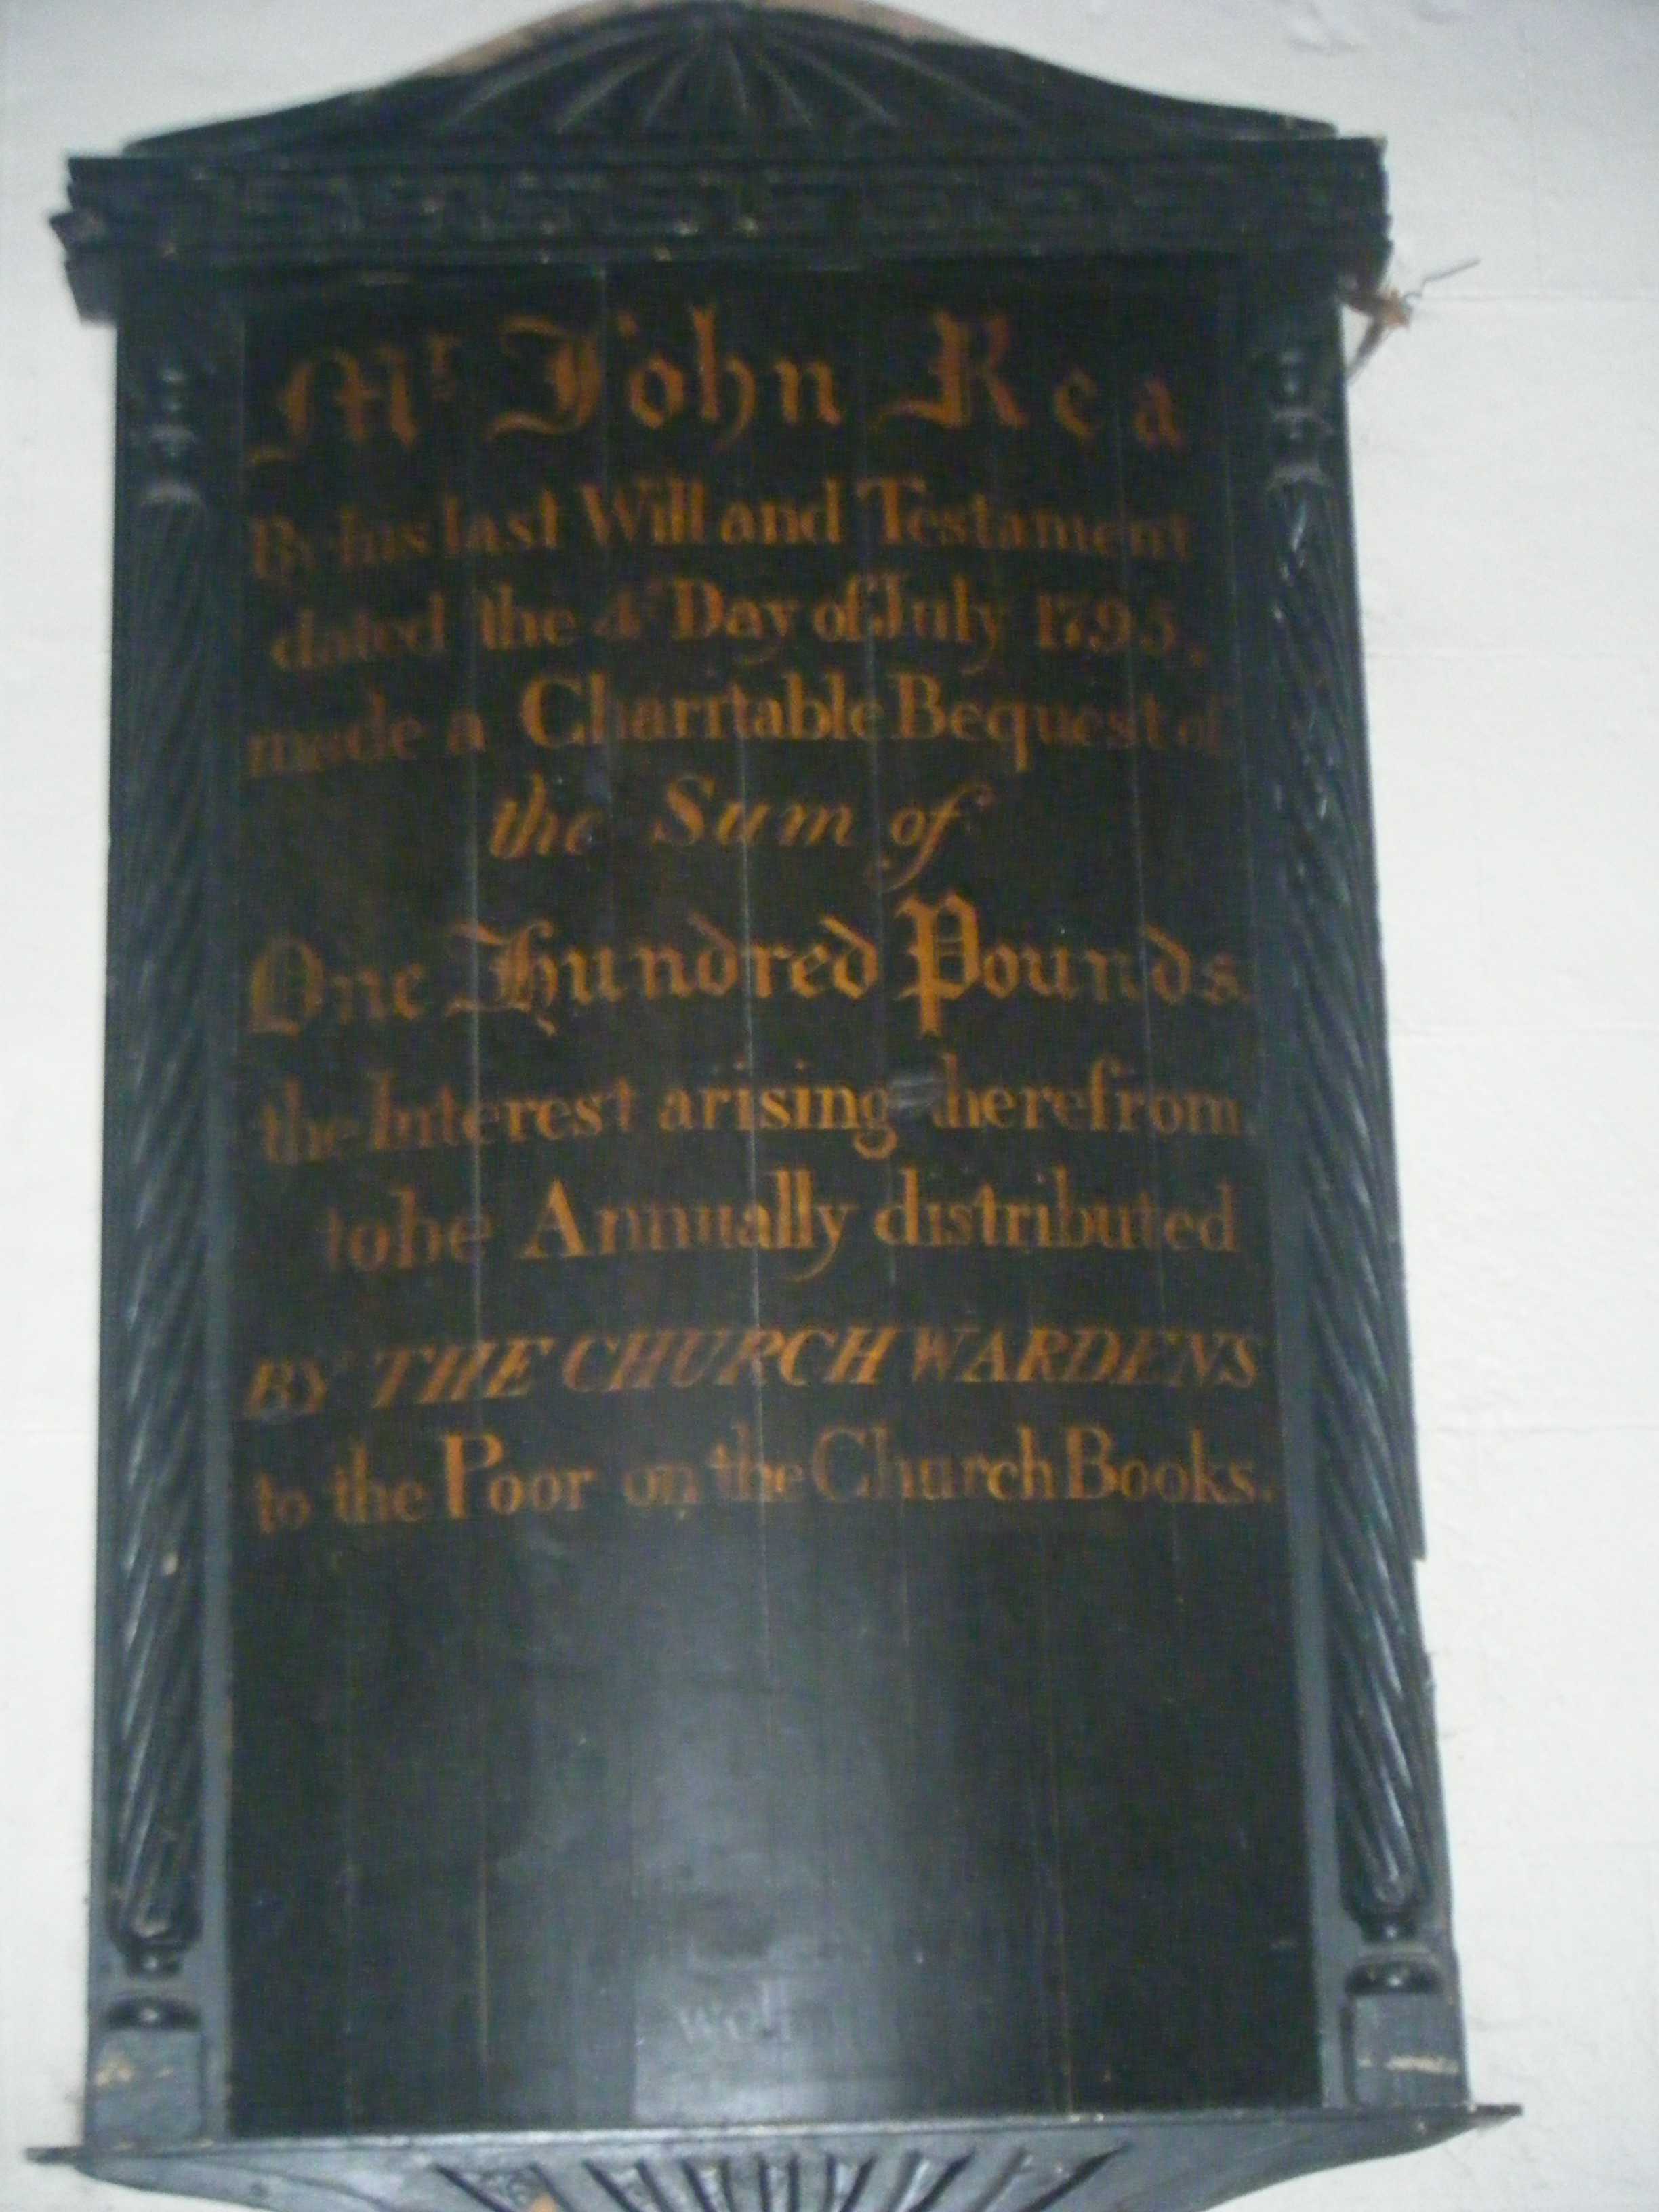 Mr John Rea
By his last Will and Testament
dated the 4th Day of July 1795,
made a Charitable Bequest of
the Sum of
One Hundred Pounds,
the Interest arising therefrom,
to be Annually distributed
BY THE CHURCH WARDENS
to the Poor on the Church Books.